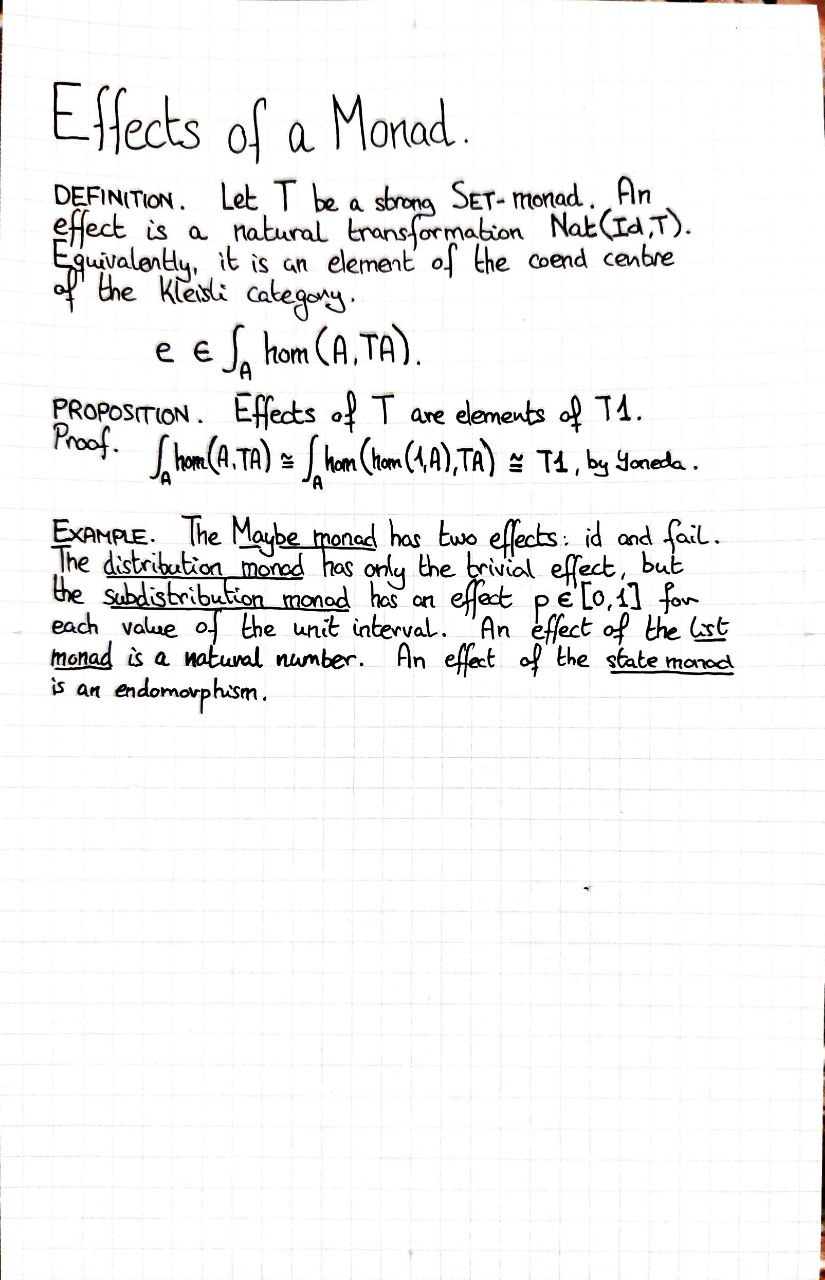 Effects of a Monad.
DEFINITION. Let T be a strong SET-monad. An
effect is a natural transformation Nat(Id,T).
Equivalently, it is an element of the coend centre
of the Kleisli category.
e ∈ ∫_A hom(A,TA).
PROPOSITION. Effects of T are elements of T1.
Proof. ∫_A hom(A,TA) ≅ ∫_A hom(hom(1,A),TA) ≅ T1, by Yoneda.
EXAMPLE. The Maybe monad has two effects: id and fail.
The distribution monad has only the trivial effect, but
the subdistribution monad has an effect p∈[0,1] for
each value of the unit interval. An effect of the list
monad is a natural number. An effect of the state monad
is an endomorphism.